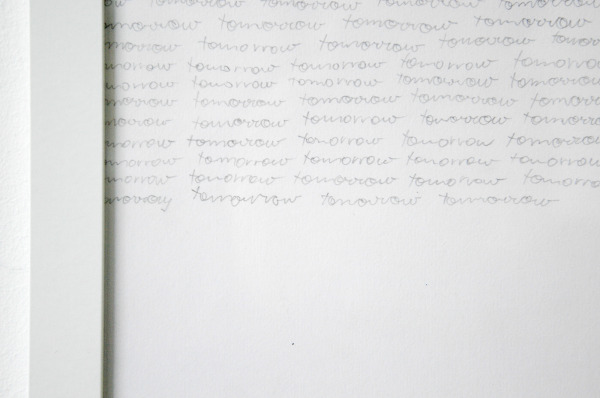 ow tomorrow tomorrow tomorrow tomorrow
morrow tomorrow tomorrow tomorrow tomorrow
morrow tomorrow tomorrow tomorrow tomor
morrow tomorrow tomorrow tomorrow tomorrow
morrow tomorrow tomorrow tomorrow tomorrow
morrow tomorrow tomorrow tomorrow tomorro
morrow tomorrow tomorrow tomorrow tomorro
morrow tomorrow tomorrow tomorrow tomorrow
morrow tomorrow tomorrow tomorrow tomorrow
morrow tomorrow tomorrow tomorrow tomorrow
morrow tomorrow tomorrow tomorrow